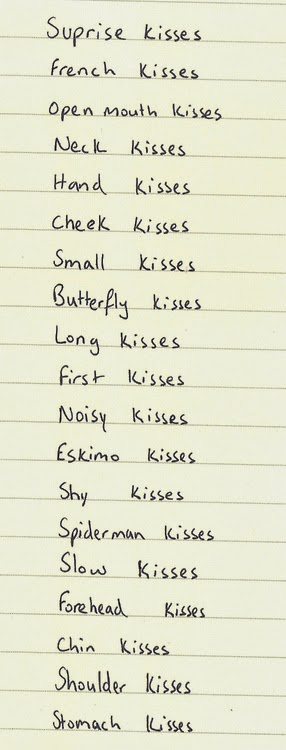 Suprise Kisses
French Kisses
Open mouth Kisses
Neck Kisses
Hand Kisses
Cheek Kisses
Small Kisses
Butterfly Kisses
Long Kisses
First Kisses
Noisy Kisses
Eskimo Kisses
Shy Kisses
Spiderman Kisses
Slow Kisses
Forehead Kisses
Chin Kisses
Shoulder Kisses
Stomach Kisses